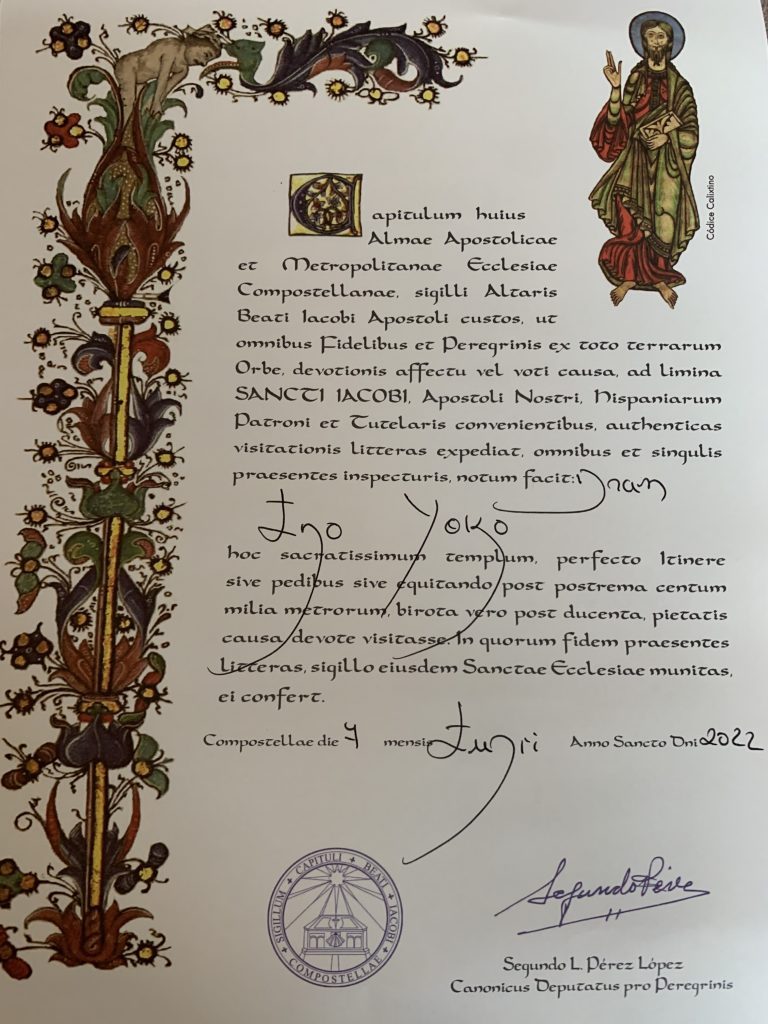 Códice Calixtino
Capitulum huius
Almae Apostolicae
et Metropolitanae Ecclesiae
Compostellanae, sigilli Altaris
Beati Iacobi Apostoli custos, ut
omnibus Fidelibus et Peregrinis ex toto terrarum
Orbe, devotionis affectu vel voti causa, ad limina
SANCTI IACOBI, Apostoli Nostri, Hispaniarum
Patroni et Tutelaris convenientibus, authenticas
visitationis litteras expediat, omnibus et singulis
praesentes inspecturis, notum facit:
Ino Yoko
hoc sacratissimum templum, perfecto Itinere
sive pedibus sive equitando post postrema centum
milia metrorum, birota vero post ducenta, pietatis
causa devote visitasse. In quorum fidem praesentes
litteras, sigillo eiusdem Sanctae Ecclesiae munitas,
ei confert.
Compostellae die mensis Anno Sancto Dni 2022
SIGILLUM CAPITULI BEATI IACOBI COMPOSTELLAE
Segundo L. Pérez López
Canonicus Deputatus pro Peregrinis